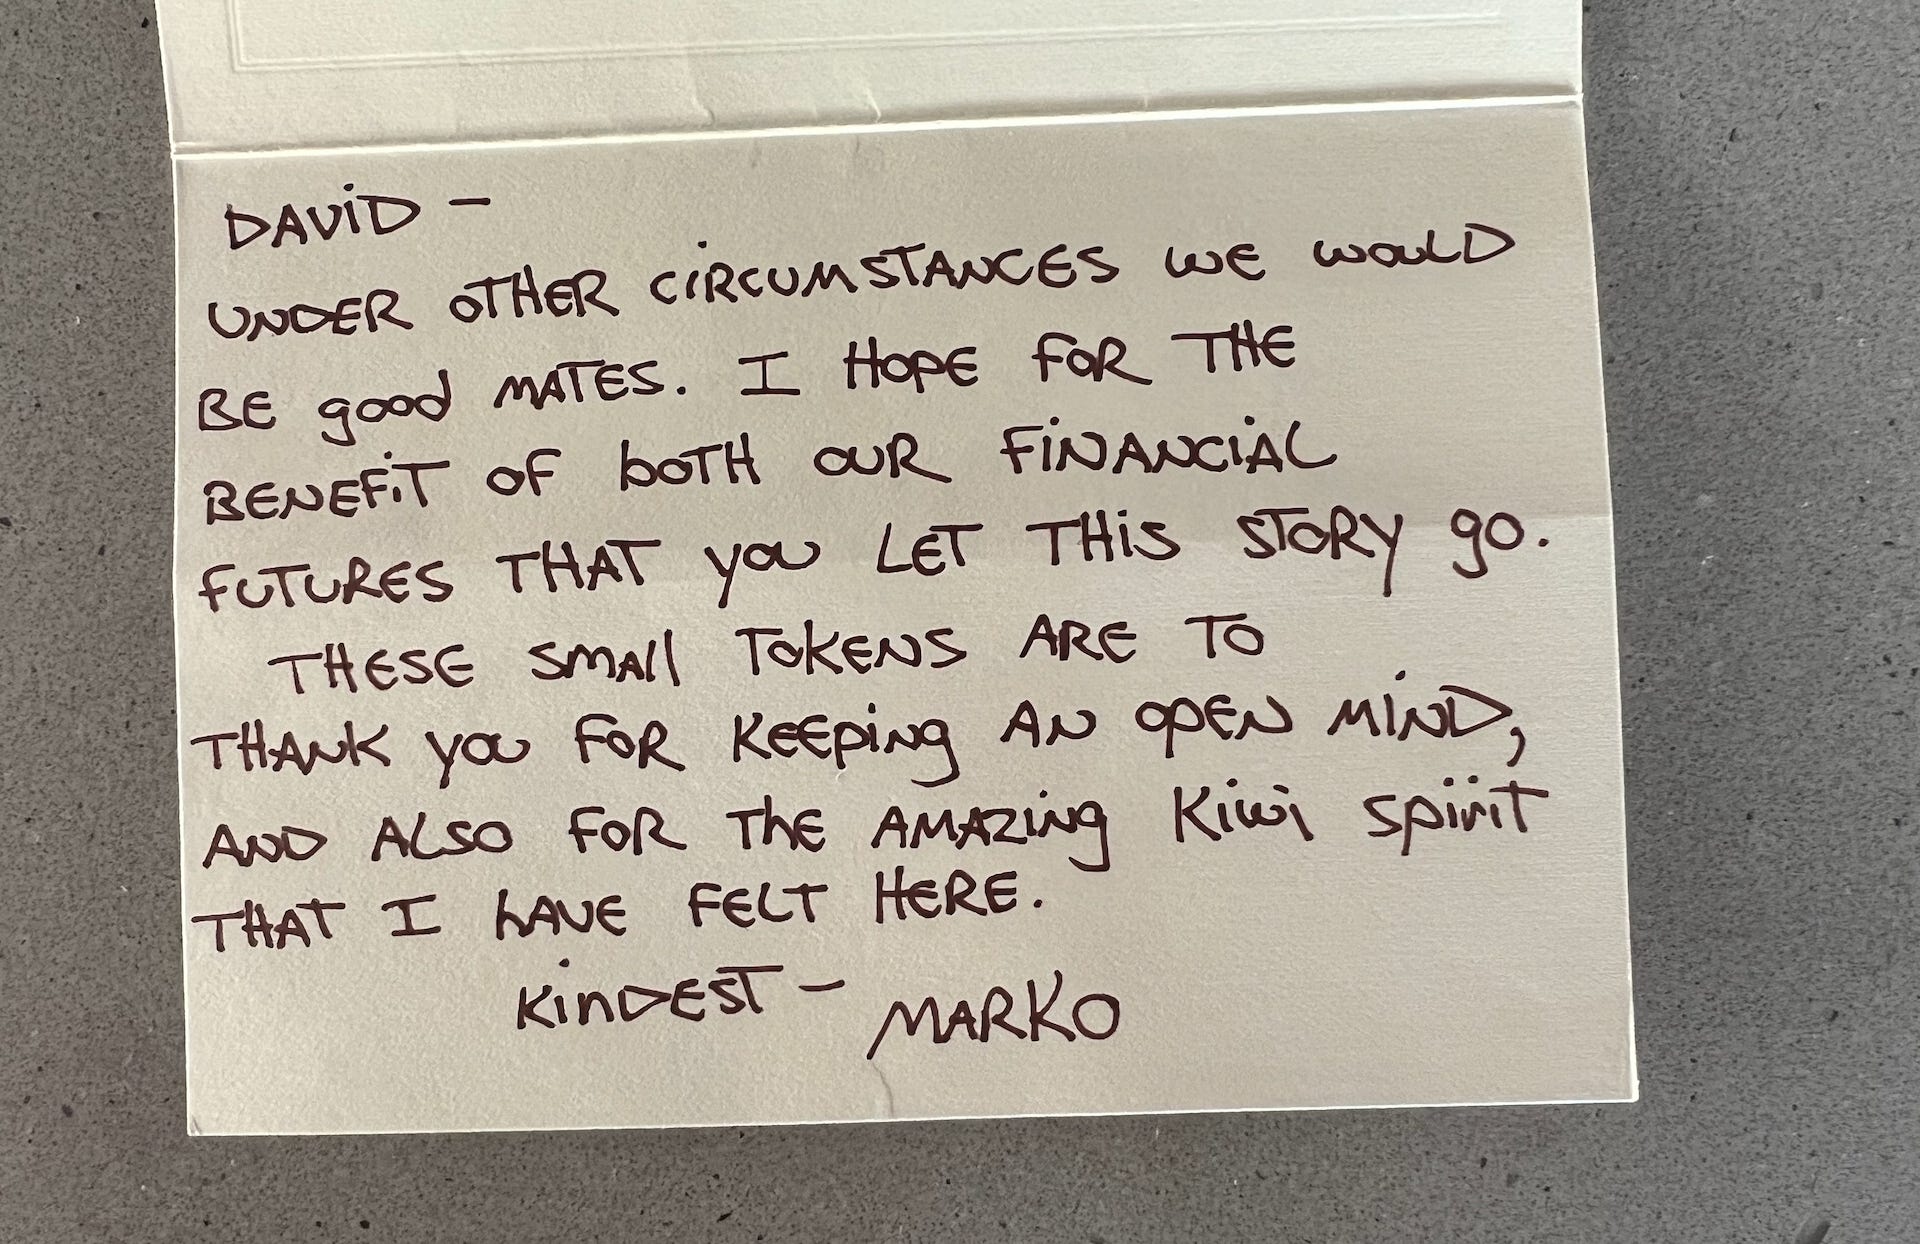 DAViD –
UNDER OTHER CiRCUMSTANCES WE WOULD
BE good MATES. I HOPE FOR THE
BENEFiT OF boTH OUR FiNANCiAL
FUTURES THAT you LET THiS STORY go.
THESE SMAll TOKENS ARE TO
THANK you FOR KEEping AN OPEN MiND,
AND ALSO FOR ThE AMAZing Kiwi spirit
THAT I hAVE FELT HERE.
KinDEST – MARKO